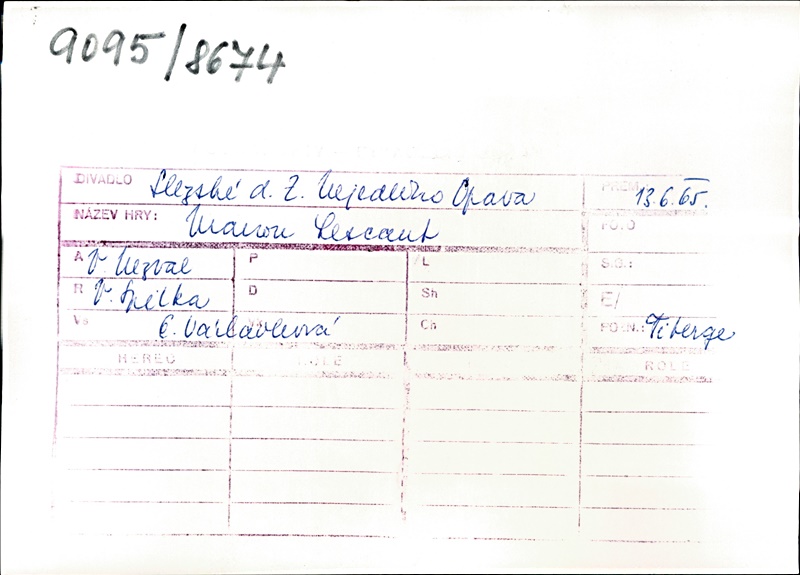 9095/8674
DIVADLO Slezské d. Z. Nejedlého Opava PREM. 13.6.65.
NÁZEV HRY: Manon Lescaut
A V. Nezval P L S.O.:
R V. Špilka D Sh E/
Vs Ch POZN.: Tiberge
HEREC ROLE ROLE